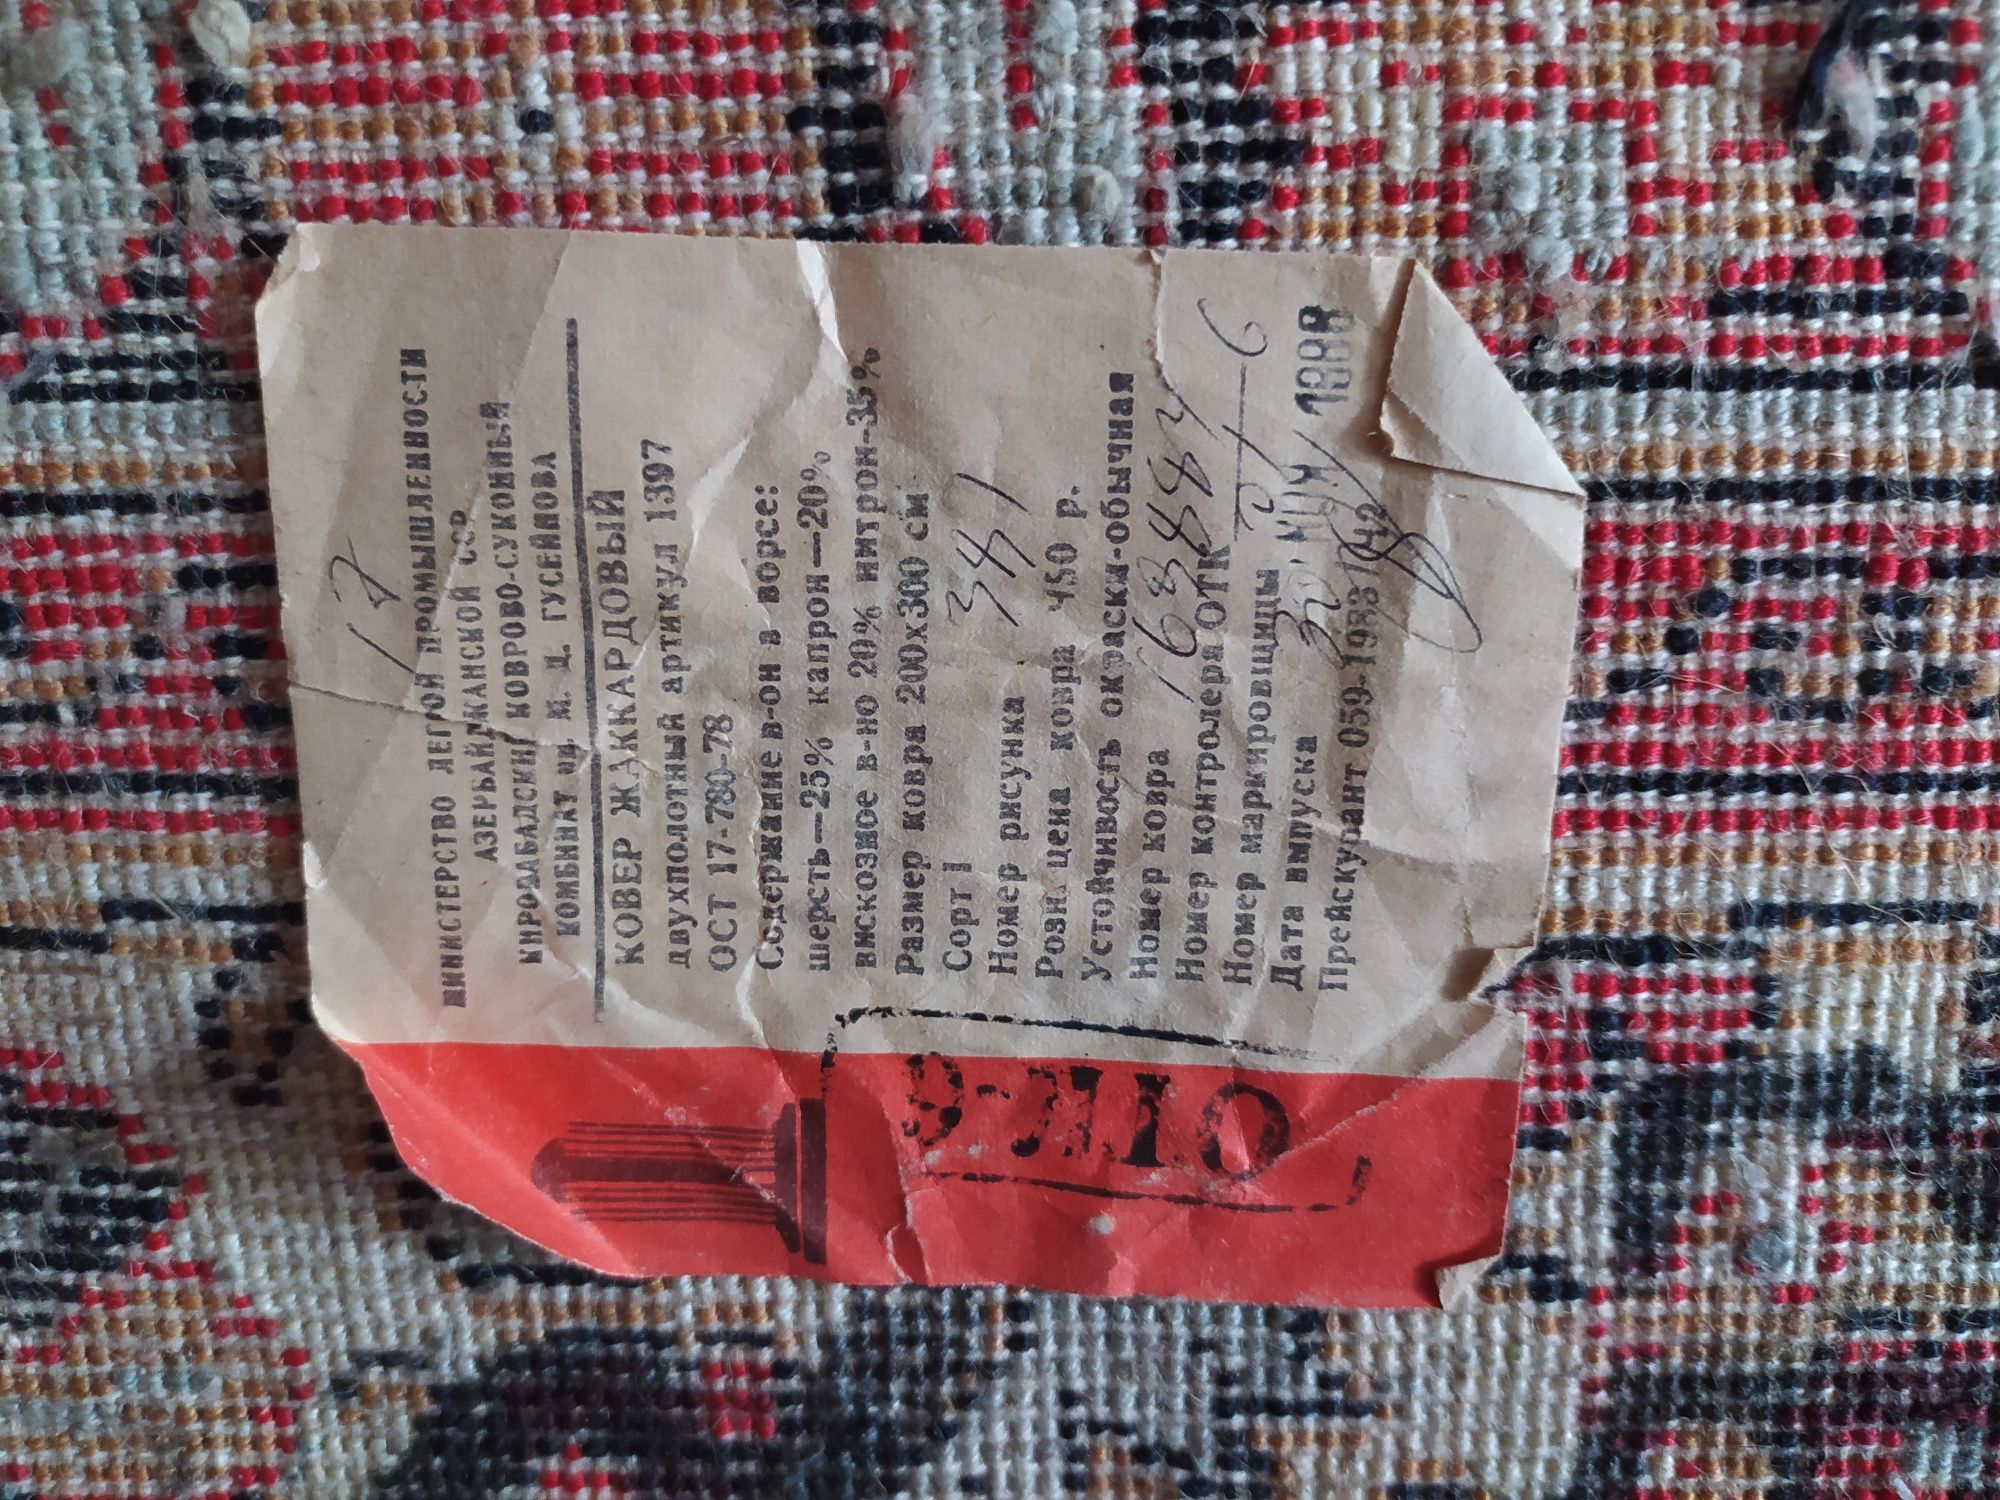 17
МИНИСТЕРСТВО ЛЕГКОЙ ПРОМЫШЛЕННОСТИ
АЗЕРБАЙДЖАНСКОЙ ССР
КИРОВАБАДСКИЙ КОВРОВО-СУКОННЫЙ
КОМБИНАТ им. М. Ц. ГУСЕЙНОВА
КОВЕР ЖАККАРДОВЫЙ
двухполотный артикул 1397
ОСТ 17-780-78
Содержание в-он в ворсе:
шерсть—25% капрон—20%
вискозное в-но 20% нитрон-35%
Размер ковра 200х300 см
Сорт 1
Номер рисунка 3441
Розн. цена ковра 450 р.
Устойчивость окраски-обычная
Номер ковра
Номер контролера ОТК
Номер маркировщицы
Дата выпуска 30 ИЮН 1988
Прейскурант 059-1983
ОТК-6